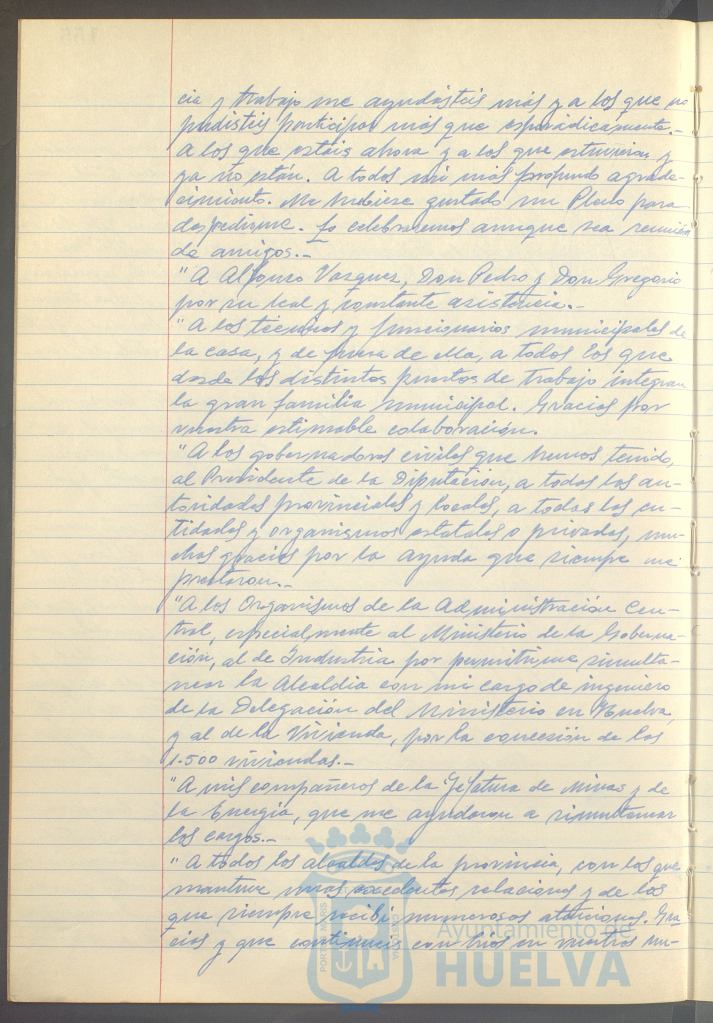 cia y trabajo me ayudásteis más y a los que no
pudisteis participar más que esporádicamente.-
A los que estáis ahora y a los que estuvieron y
ya no están. A todos mi más profundo agrade-
cimiento. Me hubiese gustado un Pleno para
despedirme. Lo celebraremos aunque sea reunión
de amigos.-
"A Alfonso Vazquez, Don Pedro y Don Gregorio
por su leal y constante asistencia.-
"A los técnicos y funcionarios municipales de
la casa, y de fuera de ella, a todos los que
desde los distintos puestos de trabajo integran
la gran familia municipal. Gracias por
vuestra estimable colaboración.
"A los gobernadores civiles que hemos tenido,
al Presidente de la Diputación, a todas las au-
toridades provinciales y locales, a todas las en-
tidades y organismos estatales o privados, mu-
chas gracias por la ayuda que siempre me
prestaron.-
"A los Organismos de la Administración Cen-
tral, especialmente al Ministerio de la Goberna-
ción, al de Industria por permitirme simulta-
near la Alcaldia con mi cargo de ingeniero
de la Delegación del Ministerio en Huelva,
y al de la Vivienda, por la concesión de las
1.500 viviendas.-
"A mis compañeros de la Jefatura de Minas y de
la Energia, que me ayudaron a simultanear
los cargos.-
"A todos los alcaldes de la provincia, con los que
mantuve unas excelentes relaciones y de los
que siempre recibí numerosas atenciones. Gra-
cias y que continueis con brios en vuestros mu-
Ayuntamiento de
HUELVA